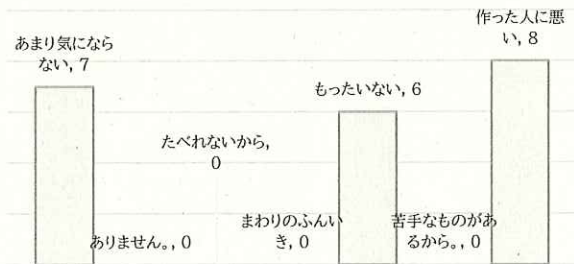 あまり気になら
ない, 7
ありません。, 0
たべれないから,
0
まわりのふんい
き, 0
もったいない, 6
苦手なものがあ
るから。, 0
作った人に悪
い, 8